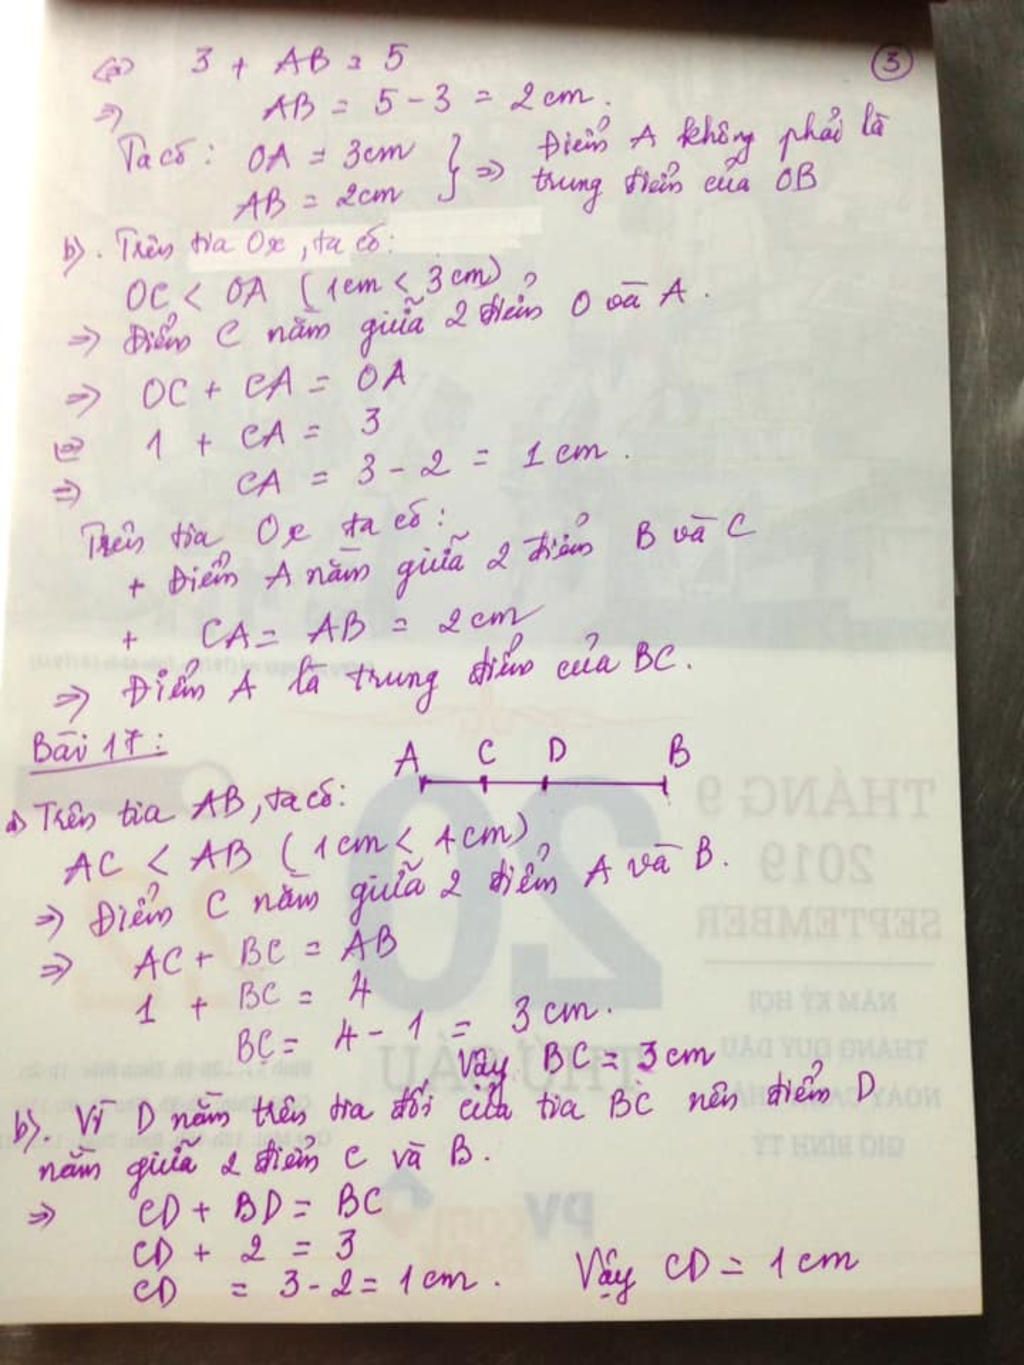 ③
⇔ 3 + AB = 5
⇒ AB = 5 - 3 = 2cm.
Ta có: OA = 3cm
AB = 2cm
} ⇒ Điểm A không phải là
trung điểm của OB
b). Trên tia Ox, ta có:
OC < OA (1cm < 3cm)
⇒ Điểm C nằm giữa 2 điểm O và A.
⇒ OC + CA = OA
⇔ 1 + CA = 3
⇒ CA = 3 - 2 = 1cm.
Trên tia Ox ta có:
+ Điểm A nằm giữa 2 điểm B và C
+ CA = AB = 2cm
⇒ Điểm A là trung điểm của BC.
Bài 17:
A C D B
a) Trên tia AB, ta có:
AC < AB (1cm < 4cm)
⇒ Điểm C nằm giữa 2 điểm A và B.
⇒ AC + BC = AB
1 + BC = 4
BC = 4 - 1 = 3cm.
Vậy BC = 3cm
b). Vì D nằm trên tia đối của tia BC nên điểm D
nằm giữa 2 điểm C và B.
⇒ CD + BD = BC
CD + 2 = 3
CD = 3 - 2 = 1cm. Vậy CD = 1cm
THÁNG 9
2019
SEPTEMBER
20
NĂM KỶ HỢI
THÁNG QUÝ DẬU
THỨ SÁU
GIỜ BÍNH TÝ
PV